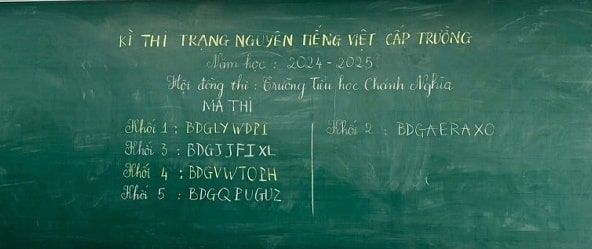 KÌ THI TRẠNG NGUYÊN TIẾNG VIỆT CẤP TRƯỜNG
Năm học : 2024 - 2025
Hội đồng thi : Trường Tiểu học Chánh Nghĩa
MÃ THI
Khối 1 : BDGLYWDPI
Khối 3 : BDGJJFIXL
Khối 4 : BDGVWTOIH
Khối 5 : BDGQPUGUZ
Khối 2 : BDGAERAXO